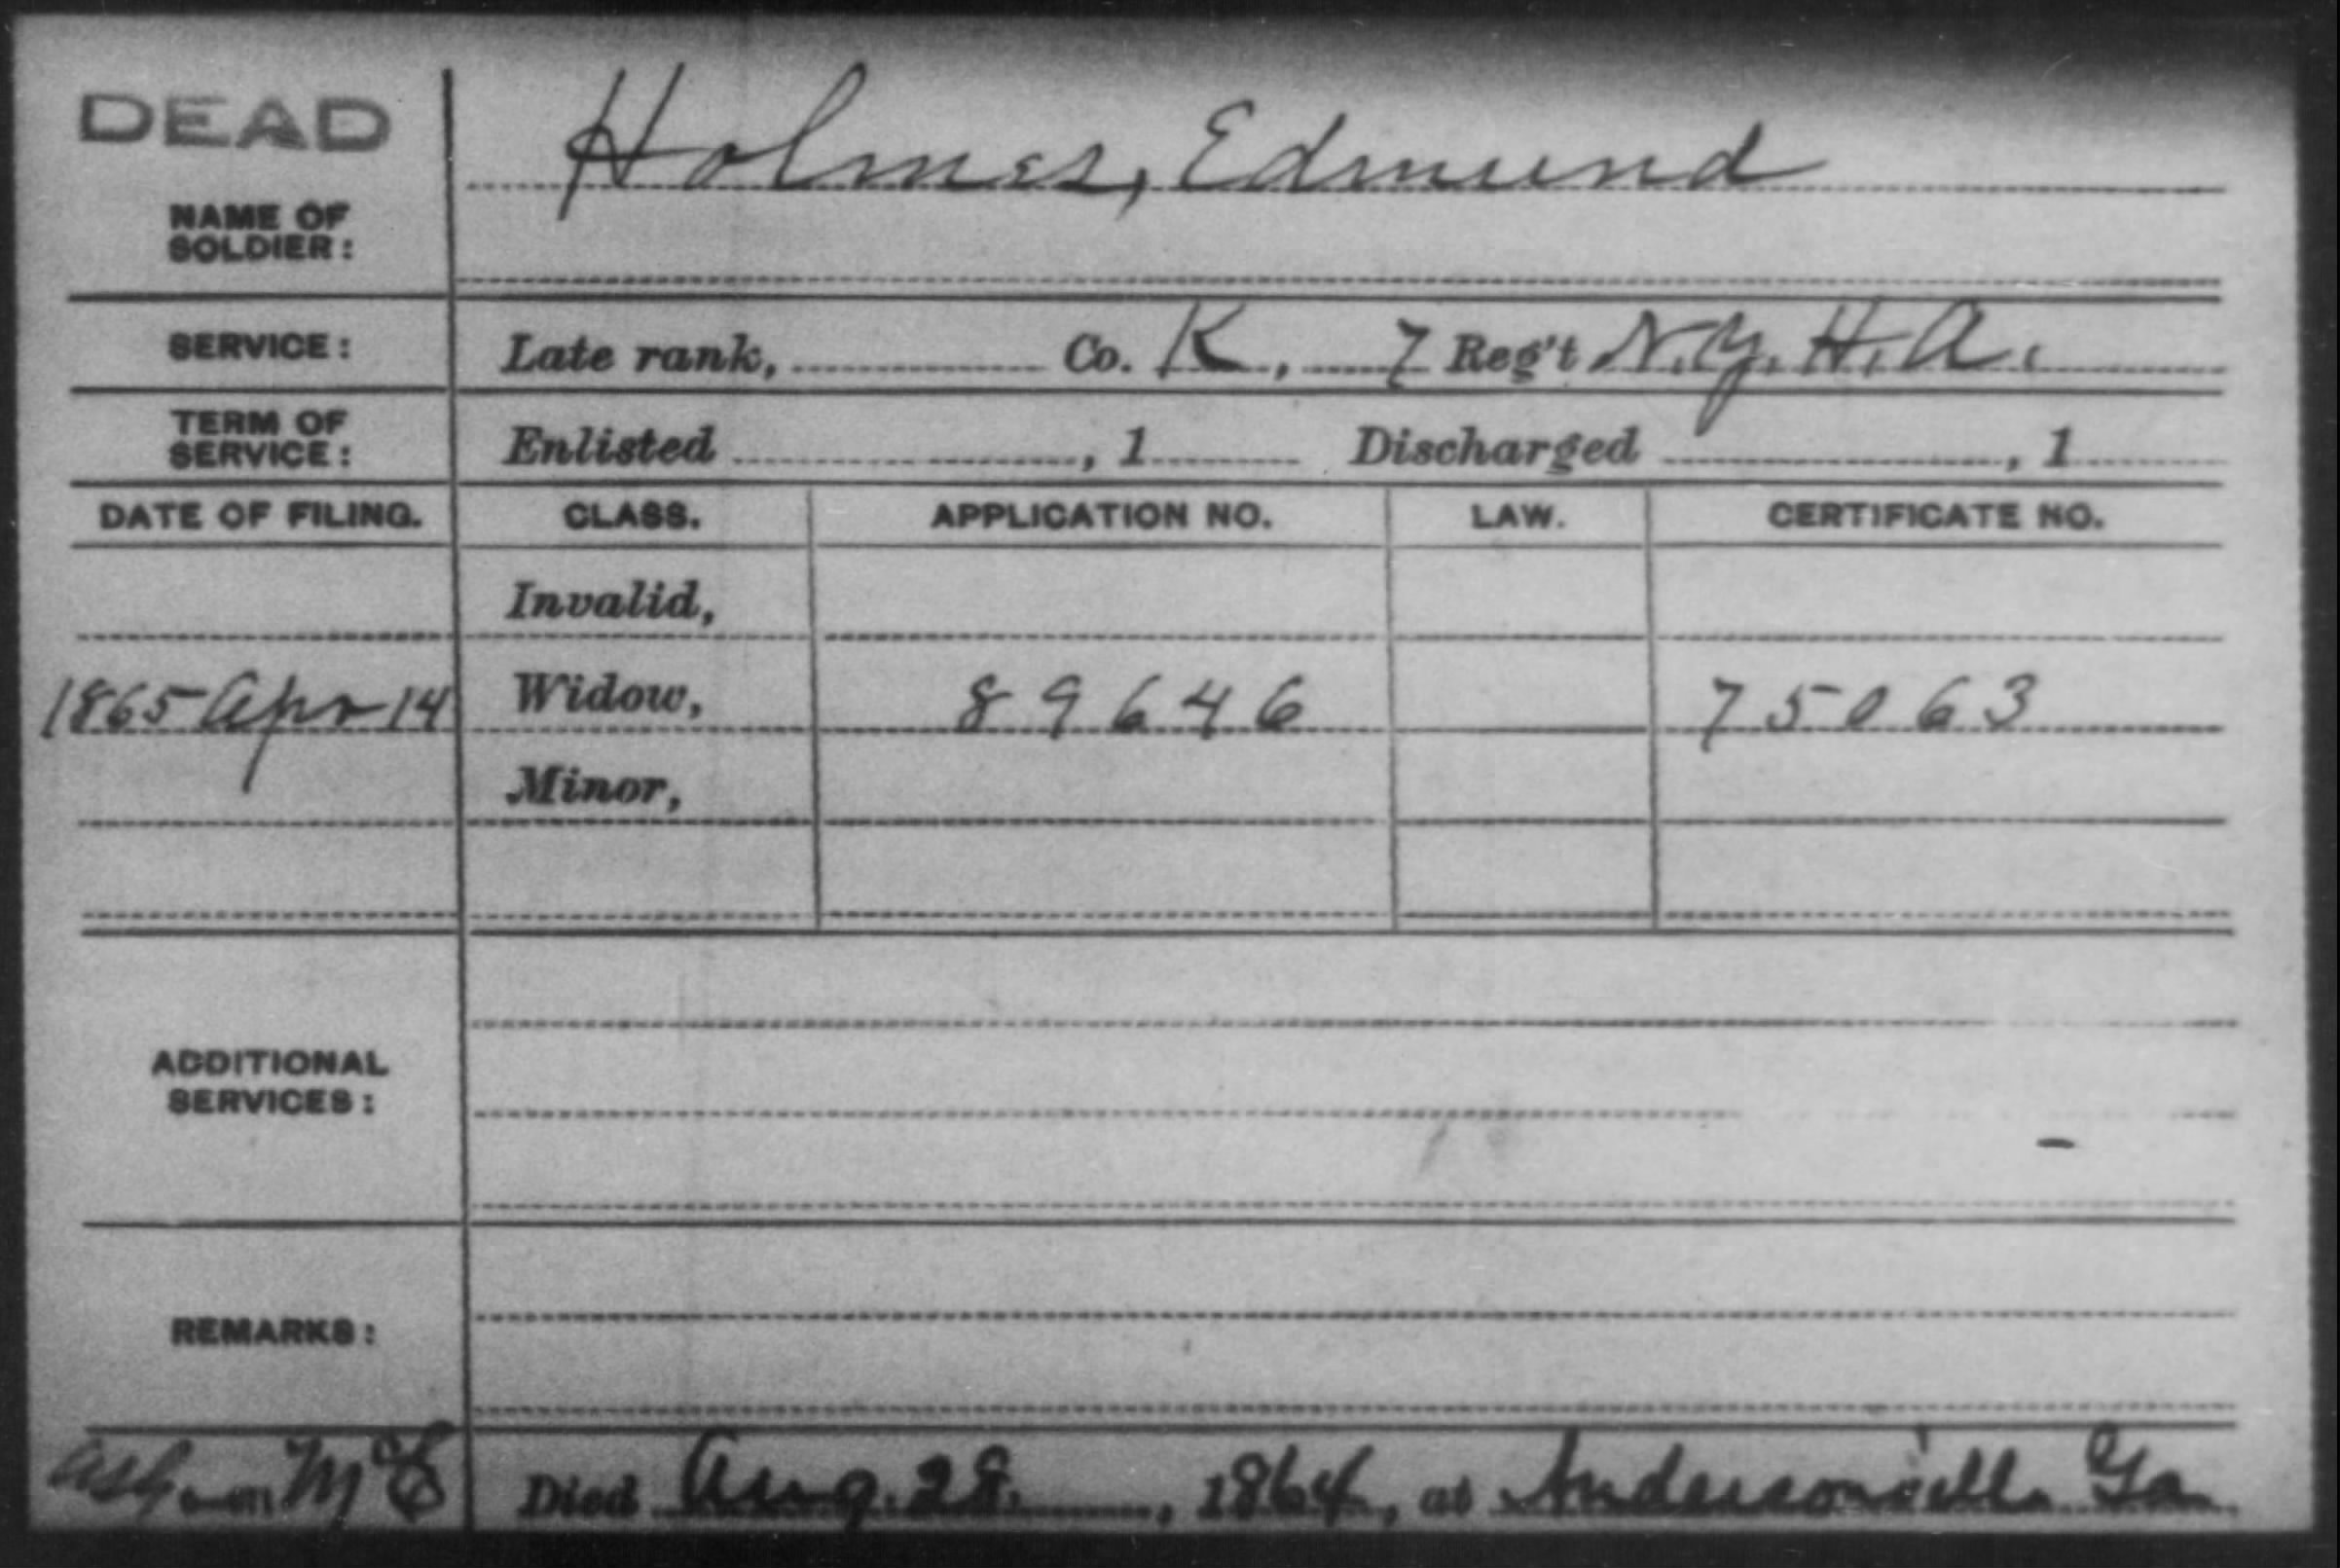 DEAD
Holmes, Edmund
NAME OF
SOLDIER:
SERVICE: Late rank, Co. K, 7 Reg't N.Y. H. A.
TERM OF
SERVICE: Enlisted , 1 Discharged , 1
DATE OF FILING. CLASS. APPLICATION NO. LAW. CERTIFICATE NO.
Invalid,
1865 Apr 14 Widow, 89646 75063
Minor,
ADDITIONAL
SERVICES:
REMARKS:
Died Aug. 28. , 1864, at Andersonville Ga